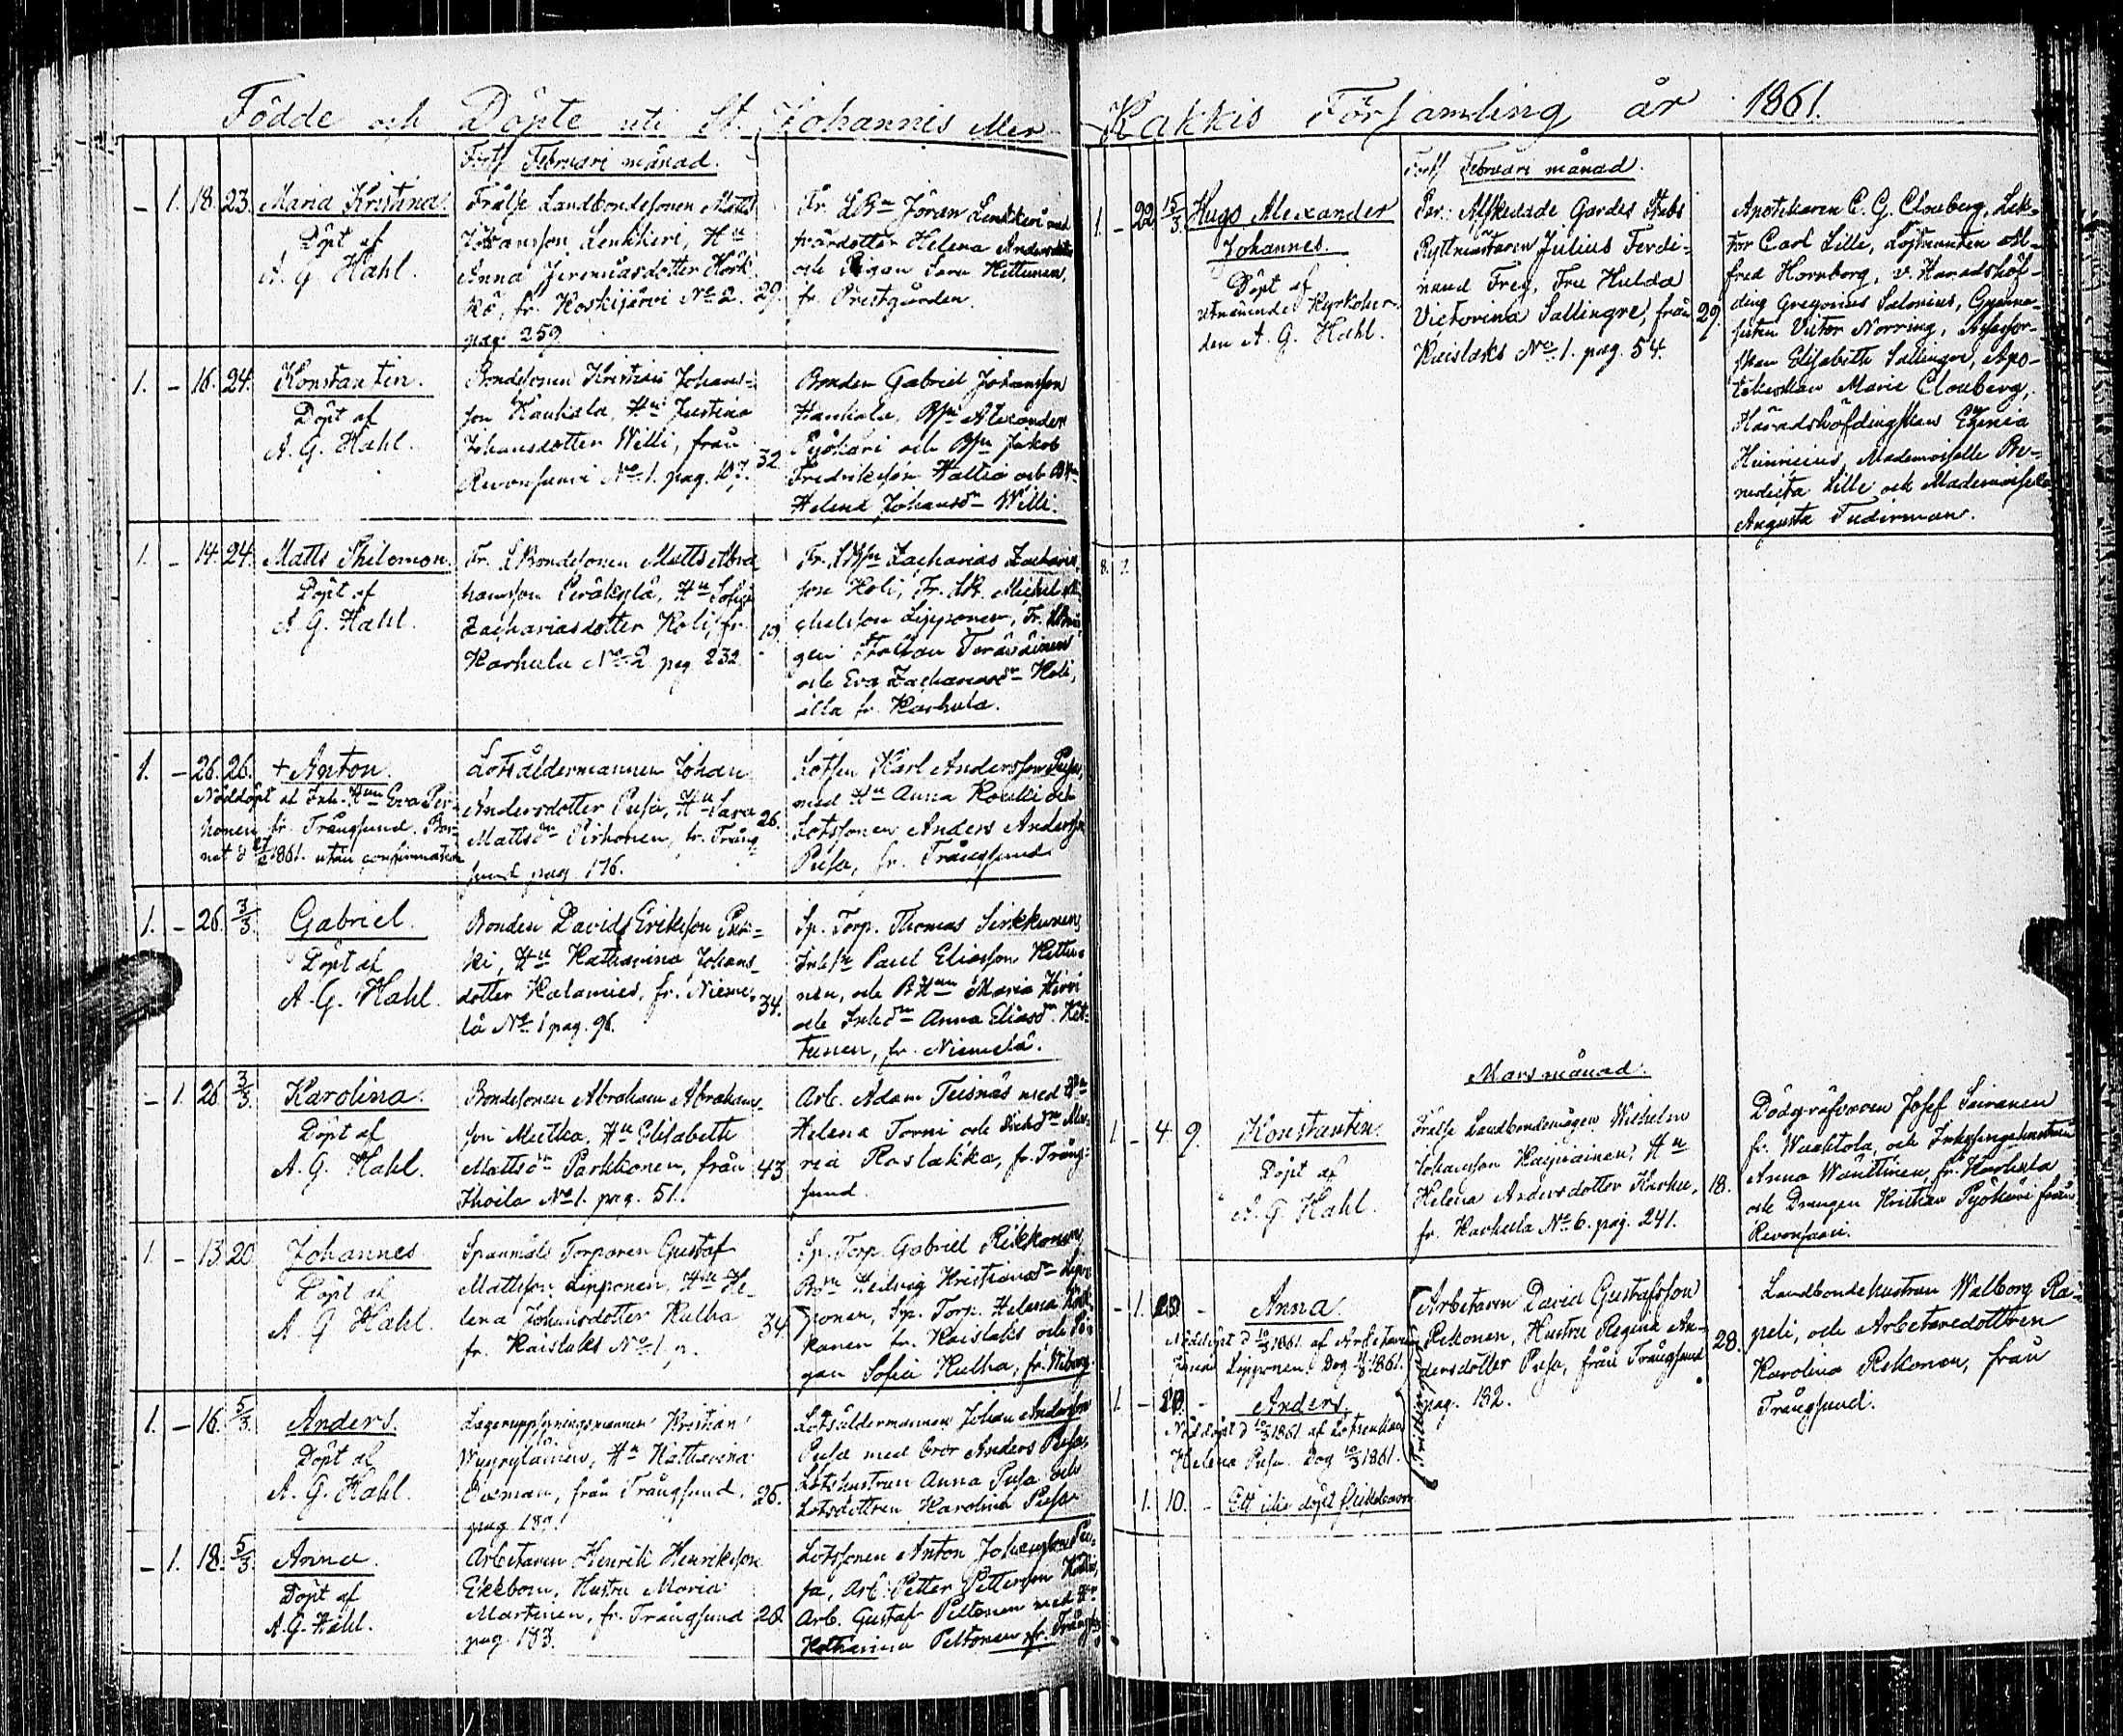 Födde och Döpte uti St. Johannis eller
Forts. Februari månad.
– 1. 18. 23. Maria Kristina.
Döpt af
A. G. Hahl.
Frälse Landbondesonen Matts
Johansson Lenkkeri, Hu
Anna Jeremiasdotter Körk-
kö, fr. Koskijärvi No 2.
pag. 259
29.
Fr. LBn Jöran Lenkkeri med
svärdotter Helena Andersdotter
och Pigan Sara Hettunen,
fr. Prestgården.
1. – 16. 24. Konstantin.
Döpt af
A. G. Hahl.
Bondesonen Kristian Johans-
son Kauhala, Hu Justina
Johansdotter Willi, från
Revonsaari No 1. pag. 127.
32.
Bonden Gabriel Johansson
Kauhala, Bsn Alexander
Pyöhäri och Bsn Jakob
Fredriksson Wallio och
Helena Johansdr Willi.
1. – 14. 24. Matts Philemon.
Döpt af
A. G. Hahl.
Fr. LBondesonen Matts Abra
hamsson Peräkylä, Hu Sofia
Zachariasdotter Koli, fr.
Karhula No 2 pag. 232.
19.
Fr. LBsn Zacharias Zacharias
son Koli, Fr. LB. Michel Mi-
chelsson Lipponen, Fr.
gen Staffan Toräväinen
och Eva Zachariasdr Koli,
alla fr. Karhula.
1. – 26. 26. + Anton.
Nöddöpt af Inh. Hun Eva Pir-
honen fr. Trångsund. Bar-
net d 1861. utan confirmation
Lotsåldermannen Johan
Andersdotter Pusa, Hu Sara
Mattsdr Pirhonen, fr. Trång
sund pag. 176.
26.
Lotsen Karl Andersson Pusa,
med Hu Anna Koukki och
Lotssonen Anders Andersson
Pusa, fr. Trångsund
1. – 26. 3/3. Gabriel.
Döpt af
A. G. Hahl.
Bonden David Eriksson Puk-
ki, Hu Katharina Johans-
dotter Kalamies, fr. Nieme-
lä No 1 pag. 96.
34.
Sp. Torp. Thomas Sirkkunen,
Inhsn Paul Eliasson Hettu-
nen, och BHun Maria Hirvi
och Inhdn Anna Eliasdr Het-
tunen, fr. Niemelä.
– 1. 26 3/3. Karolina.
Döpt af
A. G. Hahl.
Bondesonen Abraham Abrahams-
son Mutka, Hu Elisabeth
Mattsdr Parkkonen, från
Ihoila No 1. pag. 51.
43
Arb. Adam Tusnäs med
Helena Torni och Ma-
ria Raslakka, fr. Trång-
sund.
1. – 13. 20 Johannes
Döpt af
A. G Hahl.
Spanmåls Torparen Gustaf
Mattsson Lipponen, Hu He-
lena Johansdotter Kulha
fr. Kaislaks No 1. p.
34.
Sp. Torp. Gabriel Rikkonen,
Bdn Hedvig Kristiansdr Lip-
ponen, Sp. Torp. Helena
kanen fr. Kaislaks och Pi-
gan Sofia Kulha, fr. Wiborg
1. – 16. 5/3. Anders.
Döpt af
A. G. Hahl.
Lagerupplysningsmannen Kristian
Wyyryläinen, Hu Katharina
Oxman, från Trångsund.
pag. 18
26.
Lotsåldermannen Johan Andersson
Pusa med bror Anders Pusa,
Lotshustrun Anna Pusa och
Lotsdottren Karolina Pusa
– 1. 18. 5/3. Anna.
Döpt af
A. G. Hahl.
Arbetaren Henrik Henriksson
Ekkbom, Hustru Maria
Martinen, fr. Trångsund
pag. 183.
28.
Lotssonen Anton Johansson Pu-
sa, Arb. Petter Pettersson
Arb. Gustaf Peltonen med Hu
Katharina Peltonen fr. Trångs.
Kakkis Församling år 1861.
Forts. Februari månad.
1. – 22 15/3. Hugo Alexander
Johannes.
Döpt af
utnämnde Kyrkoher-
den A. G. Hahl.
Per. Afskedade Gardes Stabs
Ryttmästaren Julius Ferdi-
nand Frey, Fru Hulda
Victorina Sallingre, från
Kaislaks No 1. pag. 54.
29.
Apothekaren C. G. Clouberg, Lek-
tor Carl Lille, Löjtnanten Al-
fred Hornborg, v. Häradshöf-
ding Gregorius Salonius, Gymna-
sisten Victor Norring, Assessor-
skan Elisabeth Sallingre, Apo-
thekerskan Marie Clouberg,
Häradshöfdingskan Eugenia
Heinricius, Mademoiselle Be-
nedicta Lille och Mademoiselle
Augusta Tuderman.
8. 7.
Mars månad.
1. – 4. 9. Konstantin.
Döpt af
A. G. Hahl.
Frälse Landbondemågen Wilhelm
Johansson Haapiainen, Hu
Helena Andersdotter Karhu,
fr. Karhula No 6. pag. 241.
18.
Dödgräfvaren Josef Sairanen
fr. Waahtola, och Inhysingehustrun
Anna Wänttinen, fr. Karhula
och Drängen Kristian Pyöhäri från
Revonsaari.
– 1. 10. – Anna.
Nöddöpt d 10/3 1861. af Arbetaren
Lipponen. Dog 1861.
1. – 10. – Anders.
Nöddöpt d 10/3 1861. af Lotsenkan
Helena Pusa. Dog 10/3 1861.
Arbetaren David Gustafsson
Rikonen, Hustru Regina An-
dersdotter Pusa, från Trångsund
pag. 182.
28.
Landbondehustrun Walborg Ra-
peli, och Arbetaredottren
Karolina Rikonen, från
Trångsund.
1. 10. – Ett icke döpt flickebarn